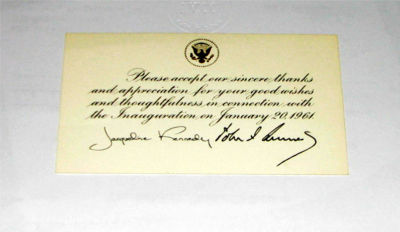 Please accept our sincere thanks
and appreciation for your good wishes
and thoughtfulness in connection with
the Inauguration on January 20, 1961
Jacqueline Kennedy John F. Kennedy